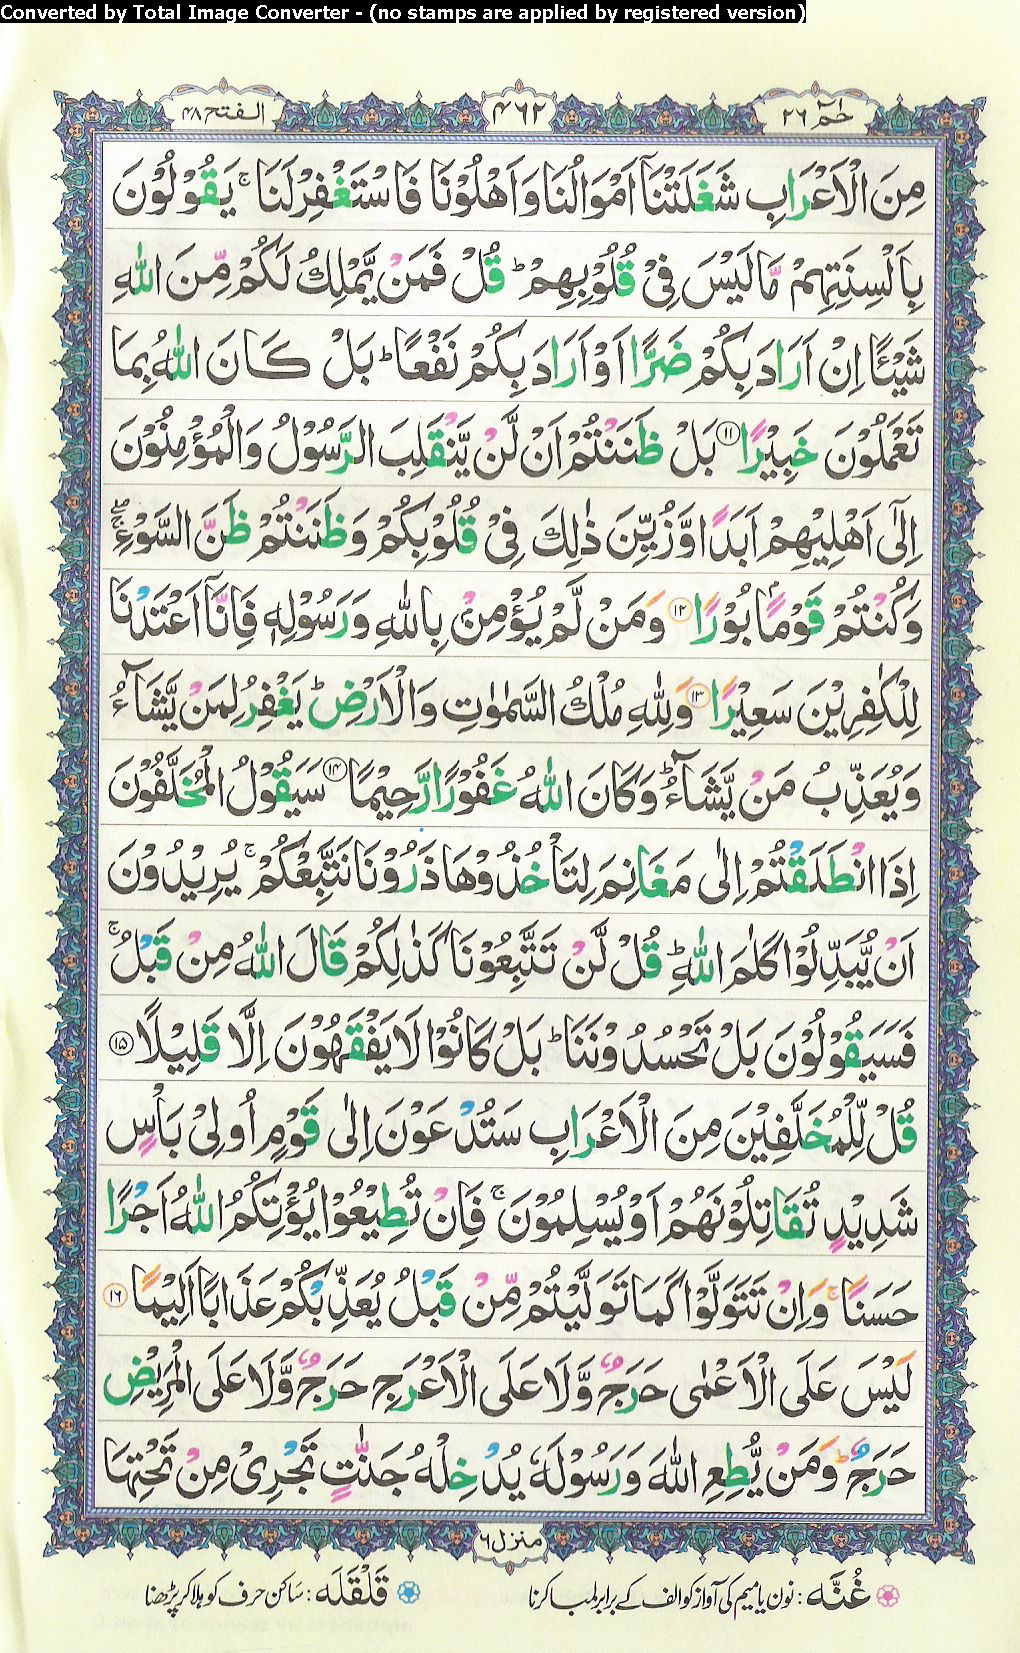 Converted by Total Image Converter - (no stamps are applied by registered version)
حٰمٓ ٢٦
٤٦٢
الفتح ٤٨
مِنَ الْاَعْرَابِ شَغَلَتْنَاۤ اَمْوَالُنَا وَاَهْلُوْنَا فَاسْتَغْفِرْلَنَا ۚ يَقُوْلُوْنَ
بِاَلْسِنَتِهِمْ مَّا لَيْسَ فِىْ قُلُوْبِهِمْ ؕ قُلْ فَمَنْ يَّمْلِكُ لَكُمْ مِّنَ اللّٰهِ
شَيْـًٔا اِنْ اَرَادَ بِكُمْ ضَرًّا اَوْ اَرَادَ بِكُمْ نَفْعًا ؕ بَلْ كَانَ اللّٰهُ بِمَا
تَعْمَلُوْنَ خَبِيْرًا ۱۱ بَلْ ظَنَنْتُمْ اَنْ لَّنْ يَّنْقَلِبَ الرَّسُوْلُ وَالْمُؤْمِنُوْنَ
اِلٰۤى اَهْلِيْهِمْ اَبَدًا وَّزُيِّنَ ذٰلِكَ فِىْ قُلُوْبِكُمْ وَظَنَنْتُمْ ظَنَّ السَّوْءِ ۚۖ
وَكُنْتُمْ قَوْمًۢا بُوْرًا ۱۲ وَمَنْ لَّمْ يُؤْمِنْۢ بِاللّٰهِ وَرَسُوْلِهٖ فَاِنَّاۤ اَعْتَدْنَا
لِلْكٰفِرِيْنَ سَعِيْرًا ۱۳ وَلِلّٰهِ مُلْكُ السَّمٰوٰتِ وَالْاَرْضِ ؕ يَغْفِرُ لِمَنْ يَّشَآءُ
وَيُعَذِّبُ مَنْ يَّشَآءُ ؕ وَكَانَ اللّٰهُ غَفُوْرًا رَّحِيْمًا ۱۴ سَيَقُوْلُ الْمُخَلَّفُوْنَ
اِذَا انْطَلَقْتُمْ اِلٰى مَغَانِمَ لِتَاْخُذُوْهَا ذَرُوْنَا نَتَّبِعْكُمْ ۚ يُرِيْدُوْنَ
اَنْ يُّبَدِّلُوْا كَلٰمَ اللّٰهِ ؕ قُلْ لَّنْ تَتَّبِعُوْنَا كَذٰلِكُمْ قَالَ اللّٰهُ مِنْ قَبْلُ ۚ
فَسَيَقُوْلُوْنَ بَلْ تَحْسُدُوْنَنَا ؕ بَلْ كَانُوْا لَا يَفْقَهُوْنَ اِلَّا قَلِيْلًا ۱۵
قُلْ لِّلْمُخَلَّفِيْنَ مِنَ الْاَعْرَابِ سَتُدْعَوْنَ اِلٰى قَوْمٍ اُولِىْ بَاْسٍ
شَدِيْدٍ تُقَاتِلُوْنَهُمْ اَوْ يُسْلِمُوْنَ ۚ فَاِنْ تُطِيْعُوْا يُؤْتِكُمُ اللّٰهُ اَجْرًا
حَسَنًا ۚ وَاِنْ تَتَوَلَّوْا كَمَا تَوَلَّيْتُمْ مِّنْ قَبْلُ يُعَذِّبْكُمْ عَذَابًا اَلِيْمًا ۱۶
لَيْسَ عَلَى الْاَعْمٰى حَرَجٌ وَّلَا عَلَى الْاَعْرَجِ حَرَجٌ وَّلَا عَلَى الْمَرِيْضِ
حَرَجٌ ؕ وَمَنْ يُّطِعِ اللّٰهَ وَرَسُوْلَهٗ يُدْخِلْهُ جَنّٰتٍ تَجْرِىْ مِنْ تَحْتِهَا
منزل ٦
غُنَّه : نون یا میم کی آواز کو الف کے برابر لمبا کرنا
قَلْقَلَه : ساکن حرف کو ہلا کر پڑھنا